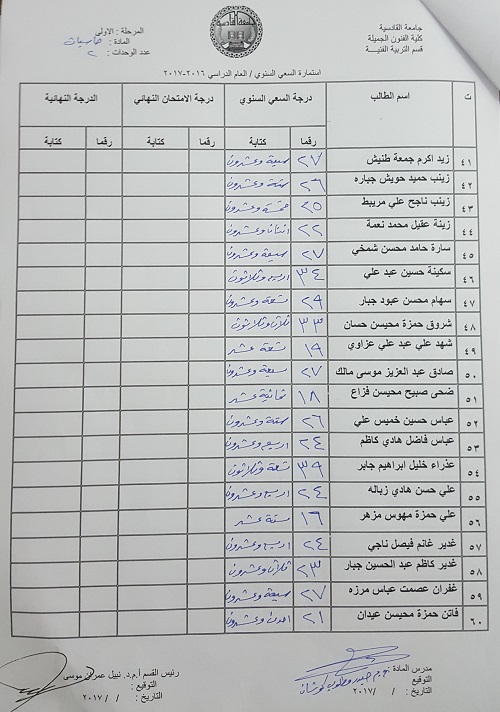 جامعة القادسية
كلية الفنون الجميلة
قسم التربية الفنية
المرحلة : الاولى
المادة :
عدد الوحدات : ٢
استمارة السعي السنوي / العام الدراسي ٢٠١٦-٢٠١٧
ت اسم الطالب درجة السعي السنوي درجة الامتحان النهائي الدرجة النهائية
رقما كتابة رقما كتابة رقما كتابة
٤١ زيد اكرم جمعة طنيش ٢٧ سبعة وعشرون
٤٢ زينب حميد حويش جباره ٢٦ ستة وعشرون
٤٣ زينب ناجح علي مريبط ٢٥ خمسة وعشرون
٤٤ زينة عقيل محمد نعمة ٢٢ اثنان وعشرون
٤٥ سارة حامد محسن شمخي ٢٧ سبعة وعشرون
٤٦ سكينة حسين عبد علي ٣٤ اربع وثلاثون
٤٧ سهام محسن عبود جبار ٢٩ تسعة وعشرون
٤٨ شروق حمزة محيسن حسان ٣٣ ثلاث وثلاثون
٤٩ شهد علي عبد علي عزاوي ١٩ تسعة عشر
٥٠ صادق عبد العزيز موسى مالك ٢٧ سبعة وعشرون
٥١ ضحى صبيح محيسن فزاع ١٨ ثمانية عشر
٥٢ عباس حسين خميس علي ٢٦ ستة وعشرون
٥٣ عباس فاضل هادي كاظم ٢٤ اربع وعشرون
٥٤ عذراء خليل ابراهيم جابر ٣٩ تسعة وثلاثون
٥٥ علي حسن هادي زباله ٢٤ اربع وعشرون
٥٦ علي حمزة مهوس مزهر ١٦ ستة عشر
٥٧ غدير غانم فيصل ناجي ٢٤ اربع وعشرون
٥٨ غدير كاظم عبد الحسين جبار ٢٣ ثلاث وعشرون
٥٩ غفران عصمت عباس مرزه ٢٧ سبعة وعشرون
٦٠ فاتن حمزة محيسن عيدان ٢١ احدى وعشرون
مدرس المادة :
التوقيع :
التاريخ : / / ٢٠١٧
رئيس القسم أ.م.د. نبيل عمران موسى
التوقيع :
التاريخ : / / ٢٠١٧